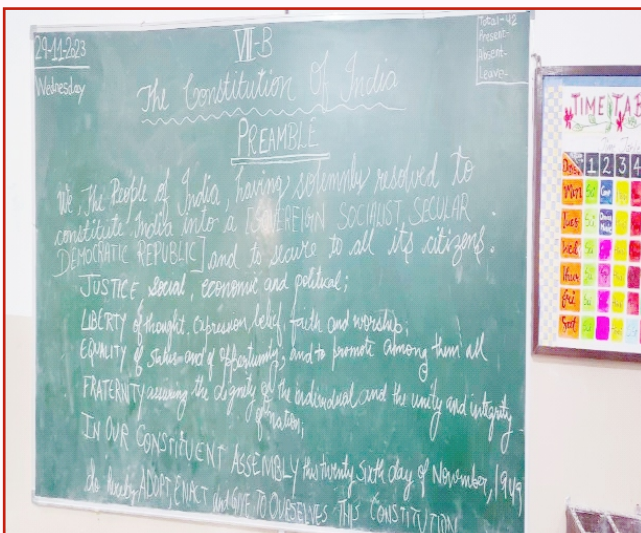 29-11-2023
Wednesday
VII-B
Total-42
Present-
Absent-
Leave-
The Constitution Of India
PREAMBLE
We, The People of India, having solemnly resolved to
constitute India into a [SOVEREIGN SOCIALIST SECULAR
DEMOCRATIC REPUBLIC] and to secure to all its citizens:
JUSTICE social, economic and political;
LIBERTY of thought, expression, belief, faith and worship;
EQUALITY of status and of opportunity; and to promote among them all
FRATERNITY assuring the dignity of the individual and the unity and integrity
of nation;
IN OUR CONSTITUENT ASSEMBLY this twenty sixth day of November, 1949
do hereby ADOPT, ENACT and GIVE TO OUESELVES THIS CONSTITUTION
TIME TAB
1 2 3 4
Mon
Tues
Wed
Thur
Fri
Sat